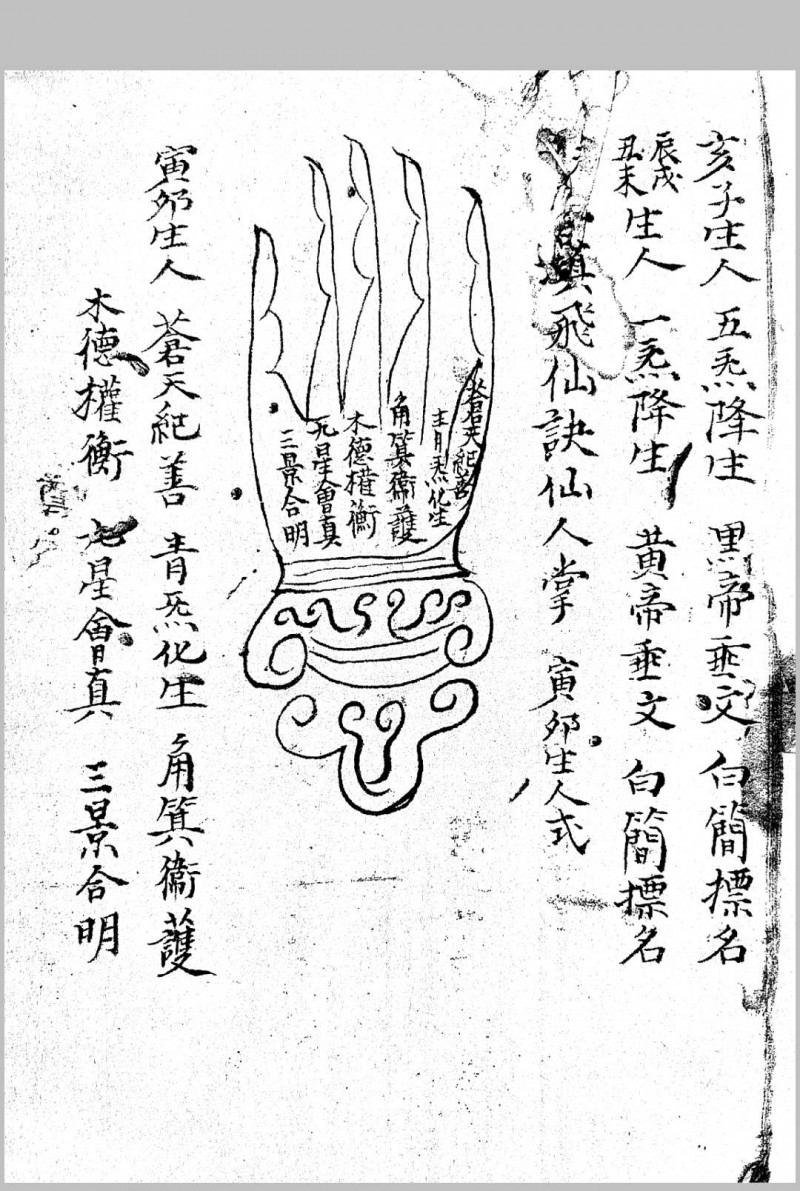 亥子生人 五炁降生 黑帝垂文 白簡標名
辰戌丑未生人 一炁降生 黃帝垂文 白簡標名
真飛仙訣仙人掌 寅夘生人式
蒼天紀善
青炁化生
角箕衞護
木德權衡
九星會真
三景合明
寅夘生人 蒼天紀善 青炁化生 角箕衞護
木德權衡 九星會真 三景合明